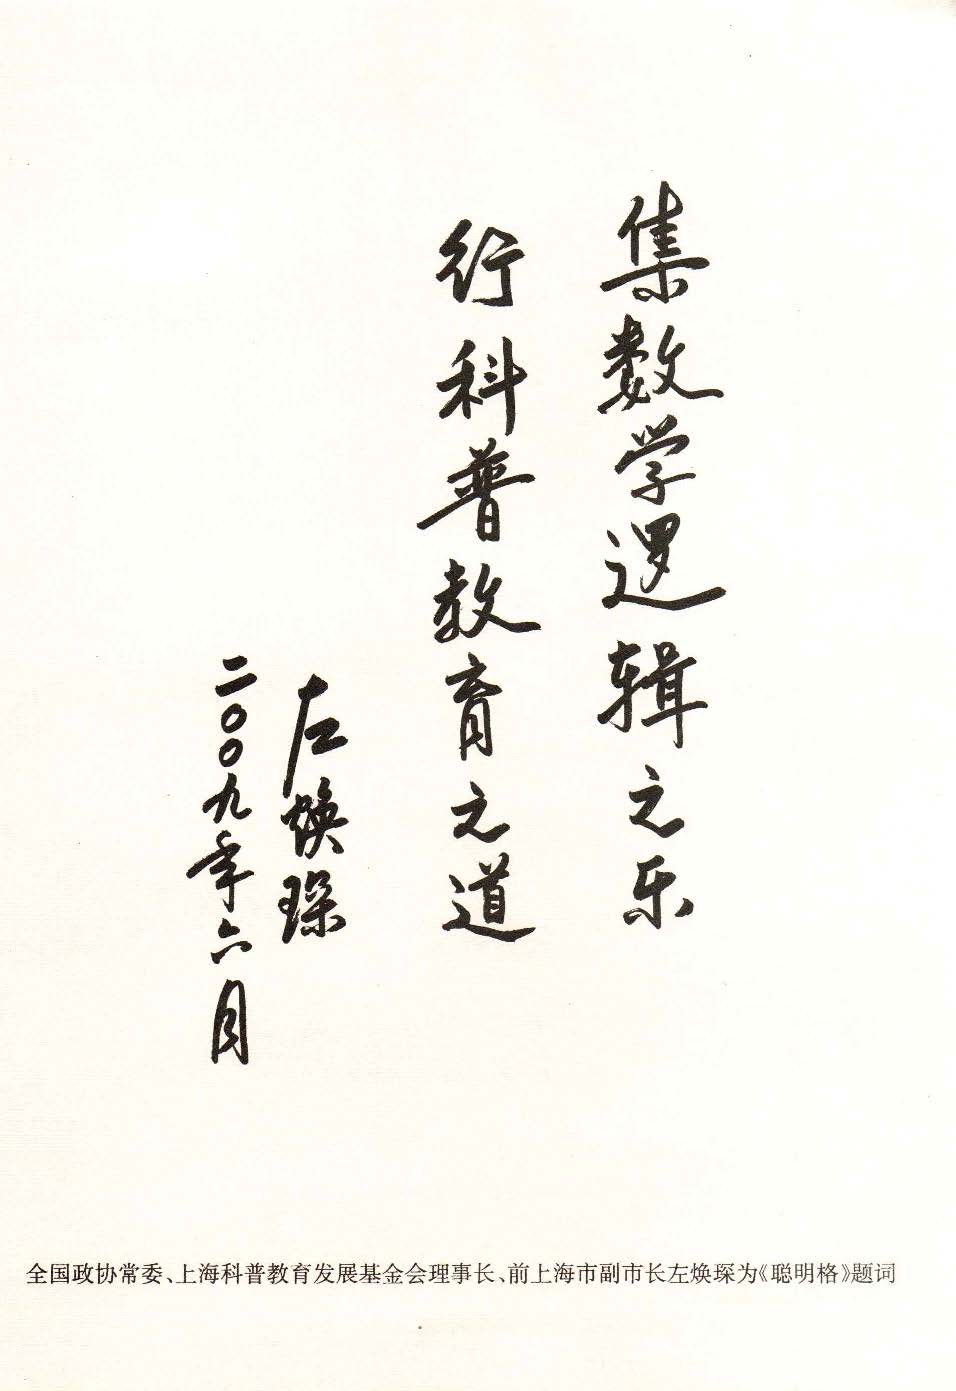 集数学逻辑之乐
行科普教育之道
左焕琛
二〇〇九年六月
全国政协常委、上海科普教育发展基金会理事长、前上海市副市长左焕琛为《聪明格》题词